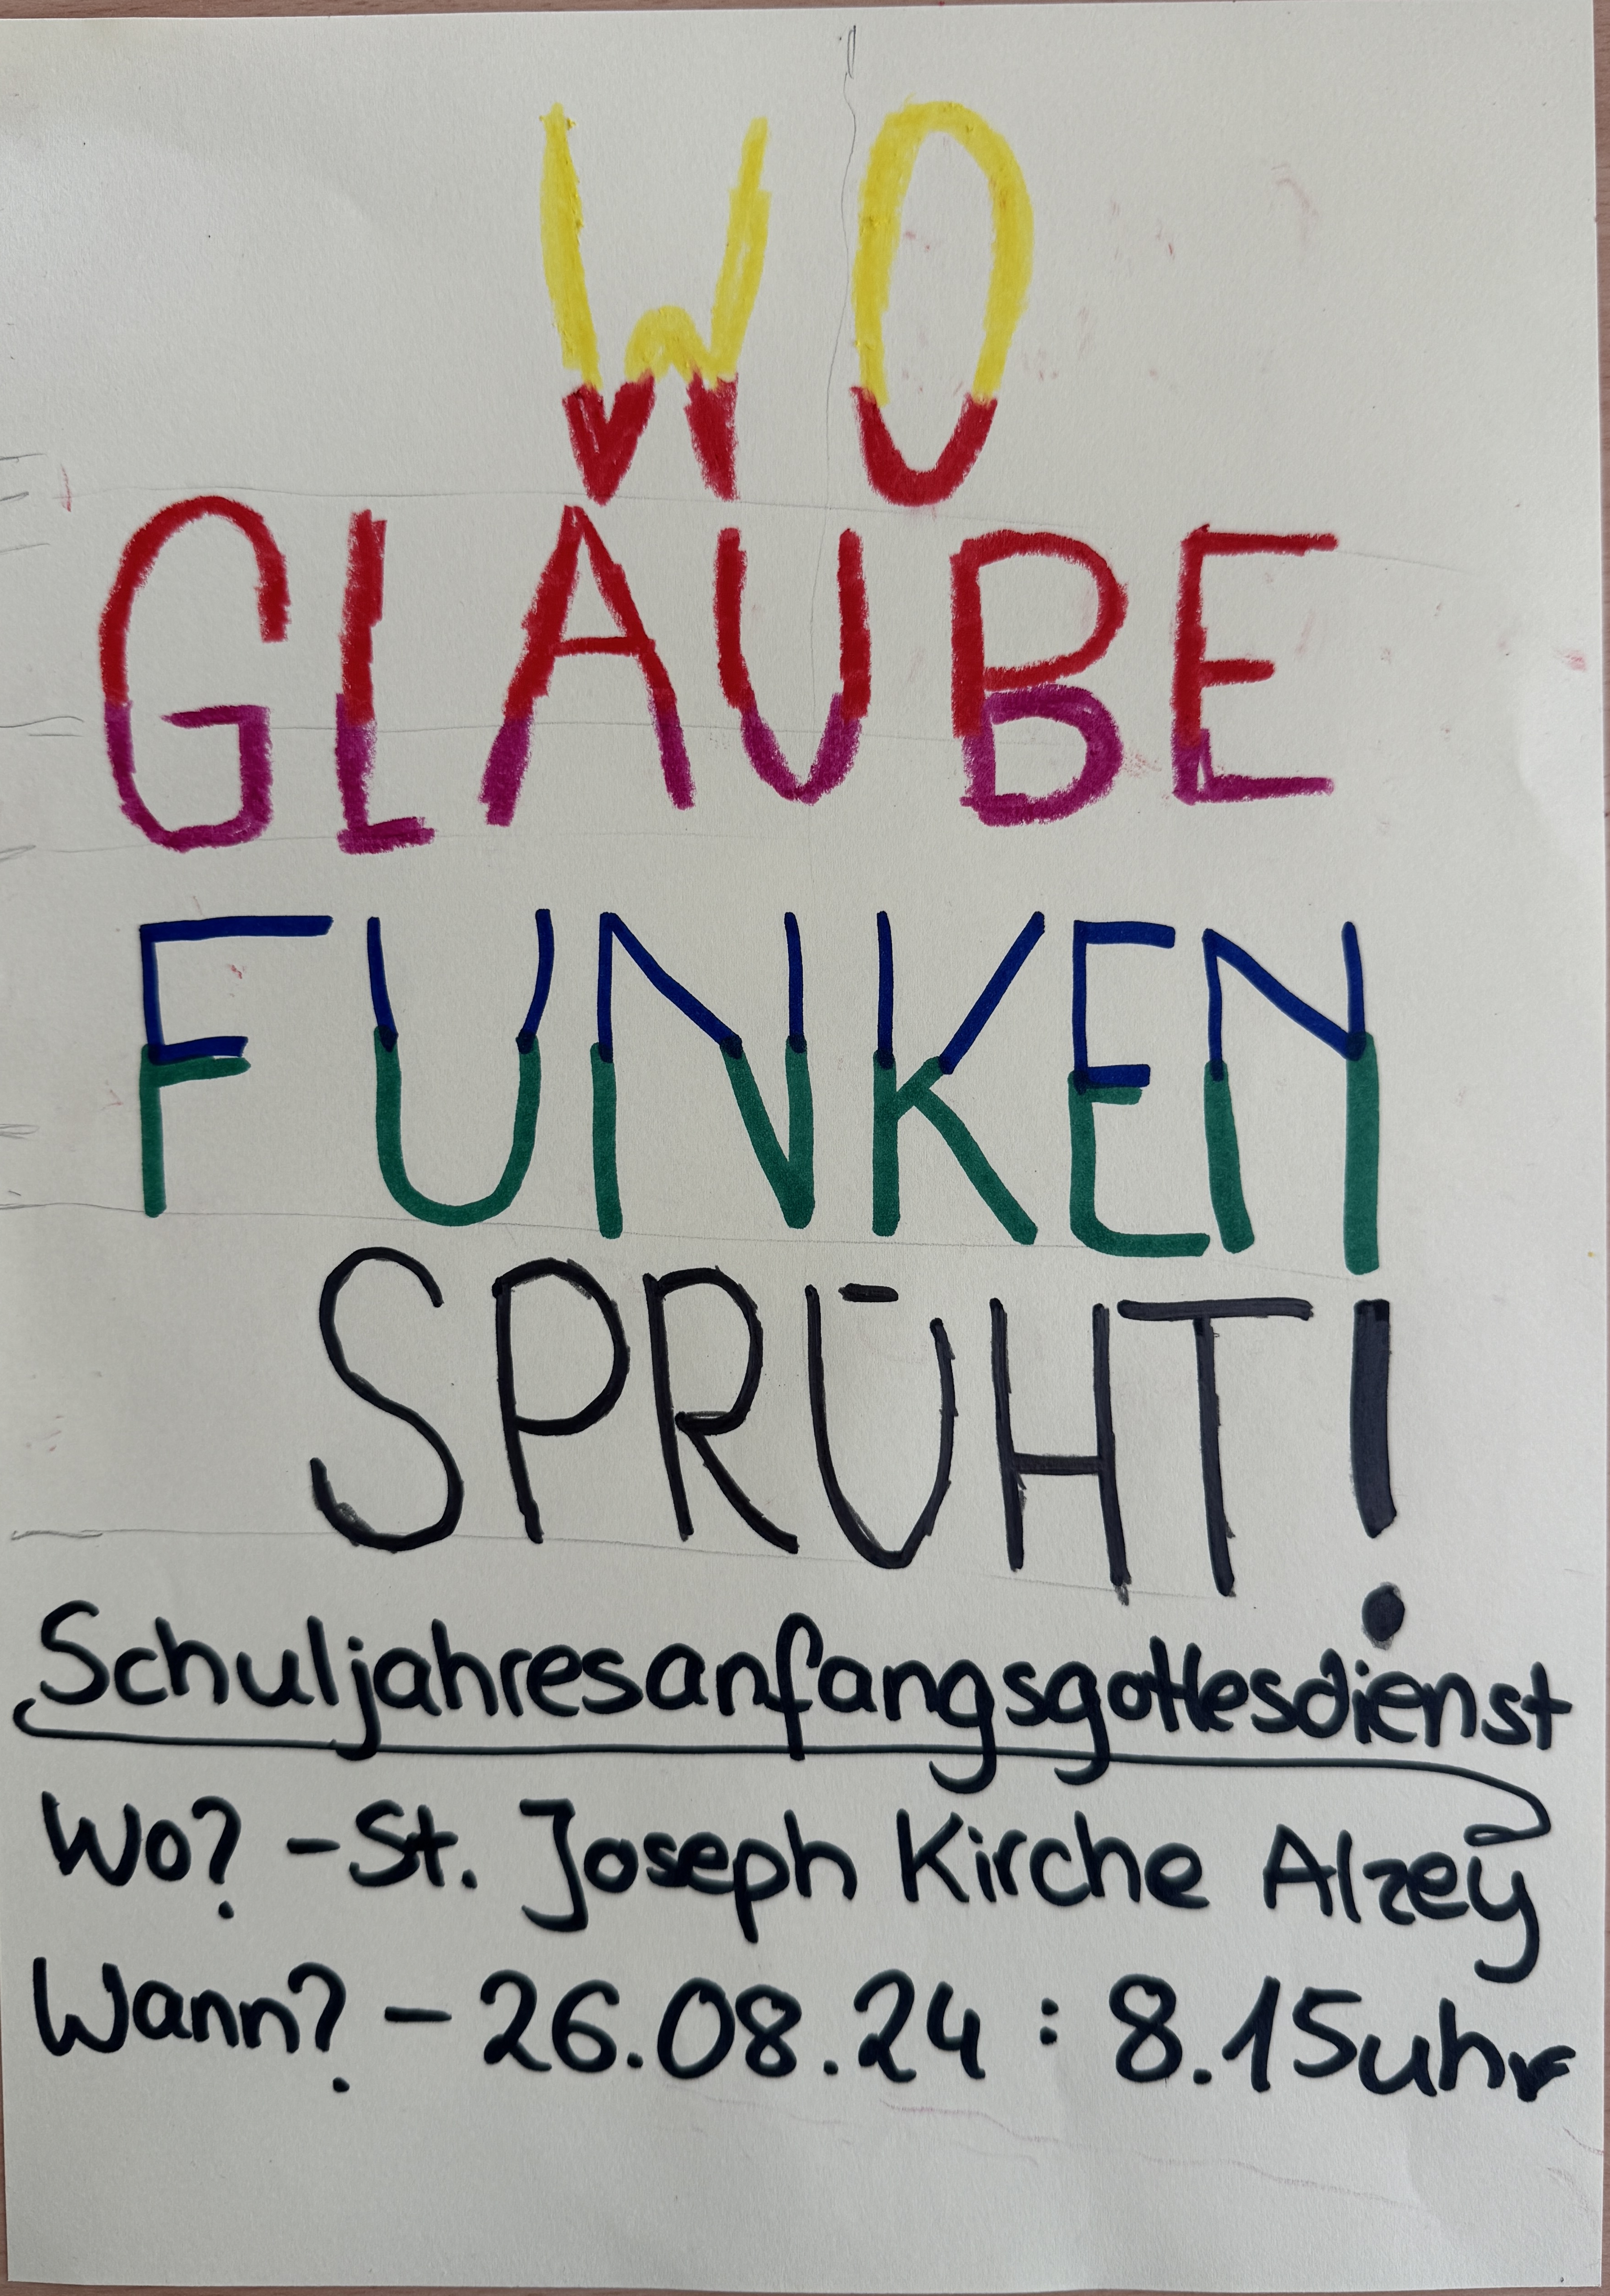 WO
GLAUBE
FUNKEN
SPRÜHT!
Schuljahresanfangsgottesdienst
Wo? - St. Joseph Kirche Alzey
Wann? - 26.08.24 : 8.15uhr